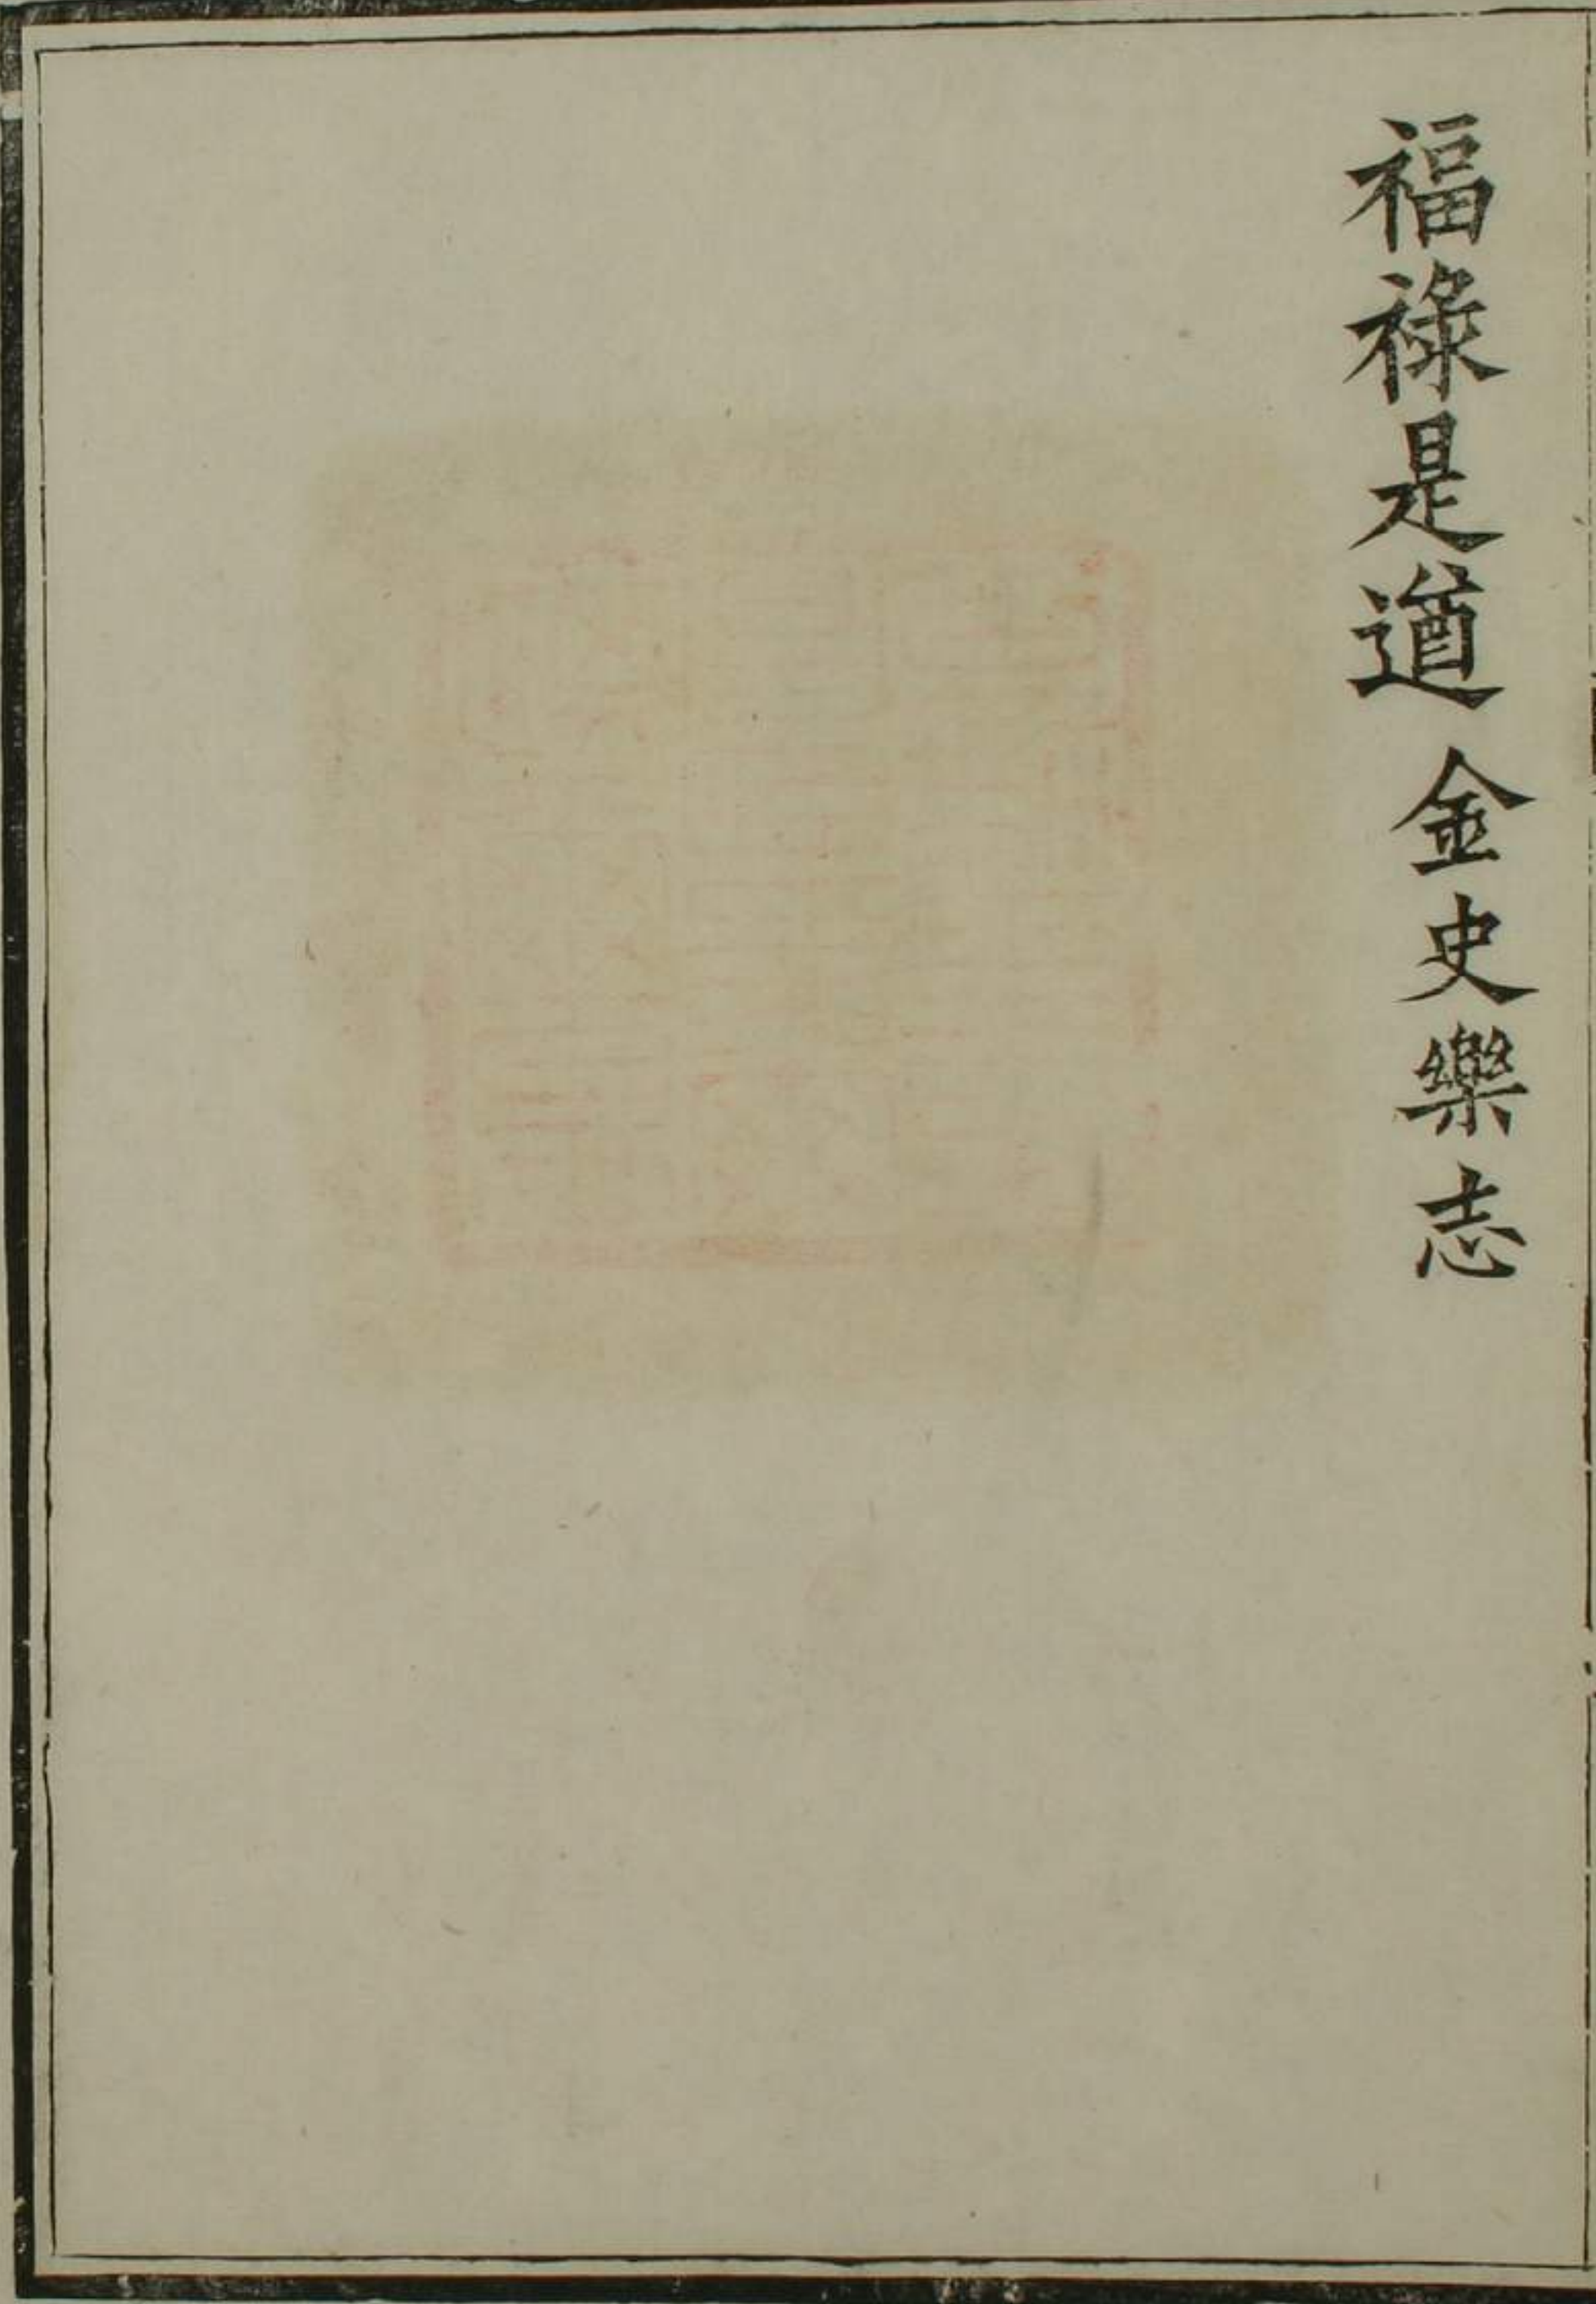 福祿是遒金史樂志